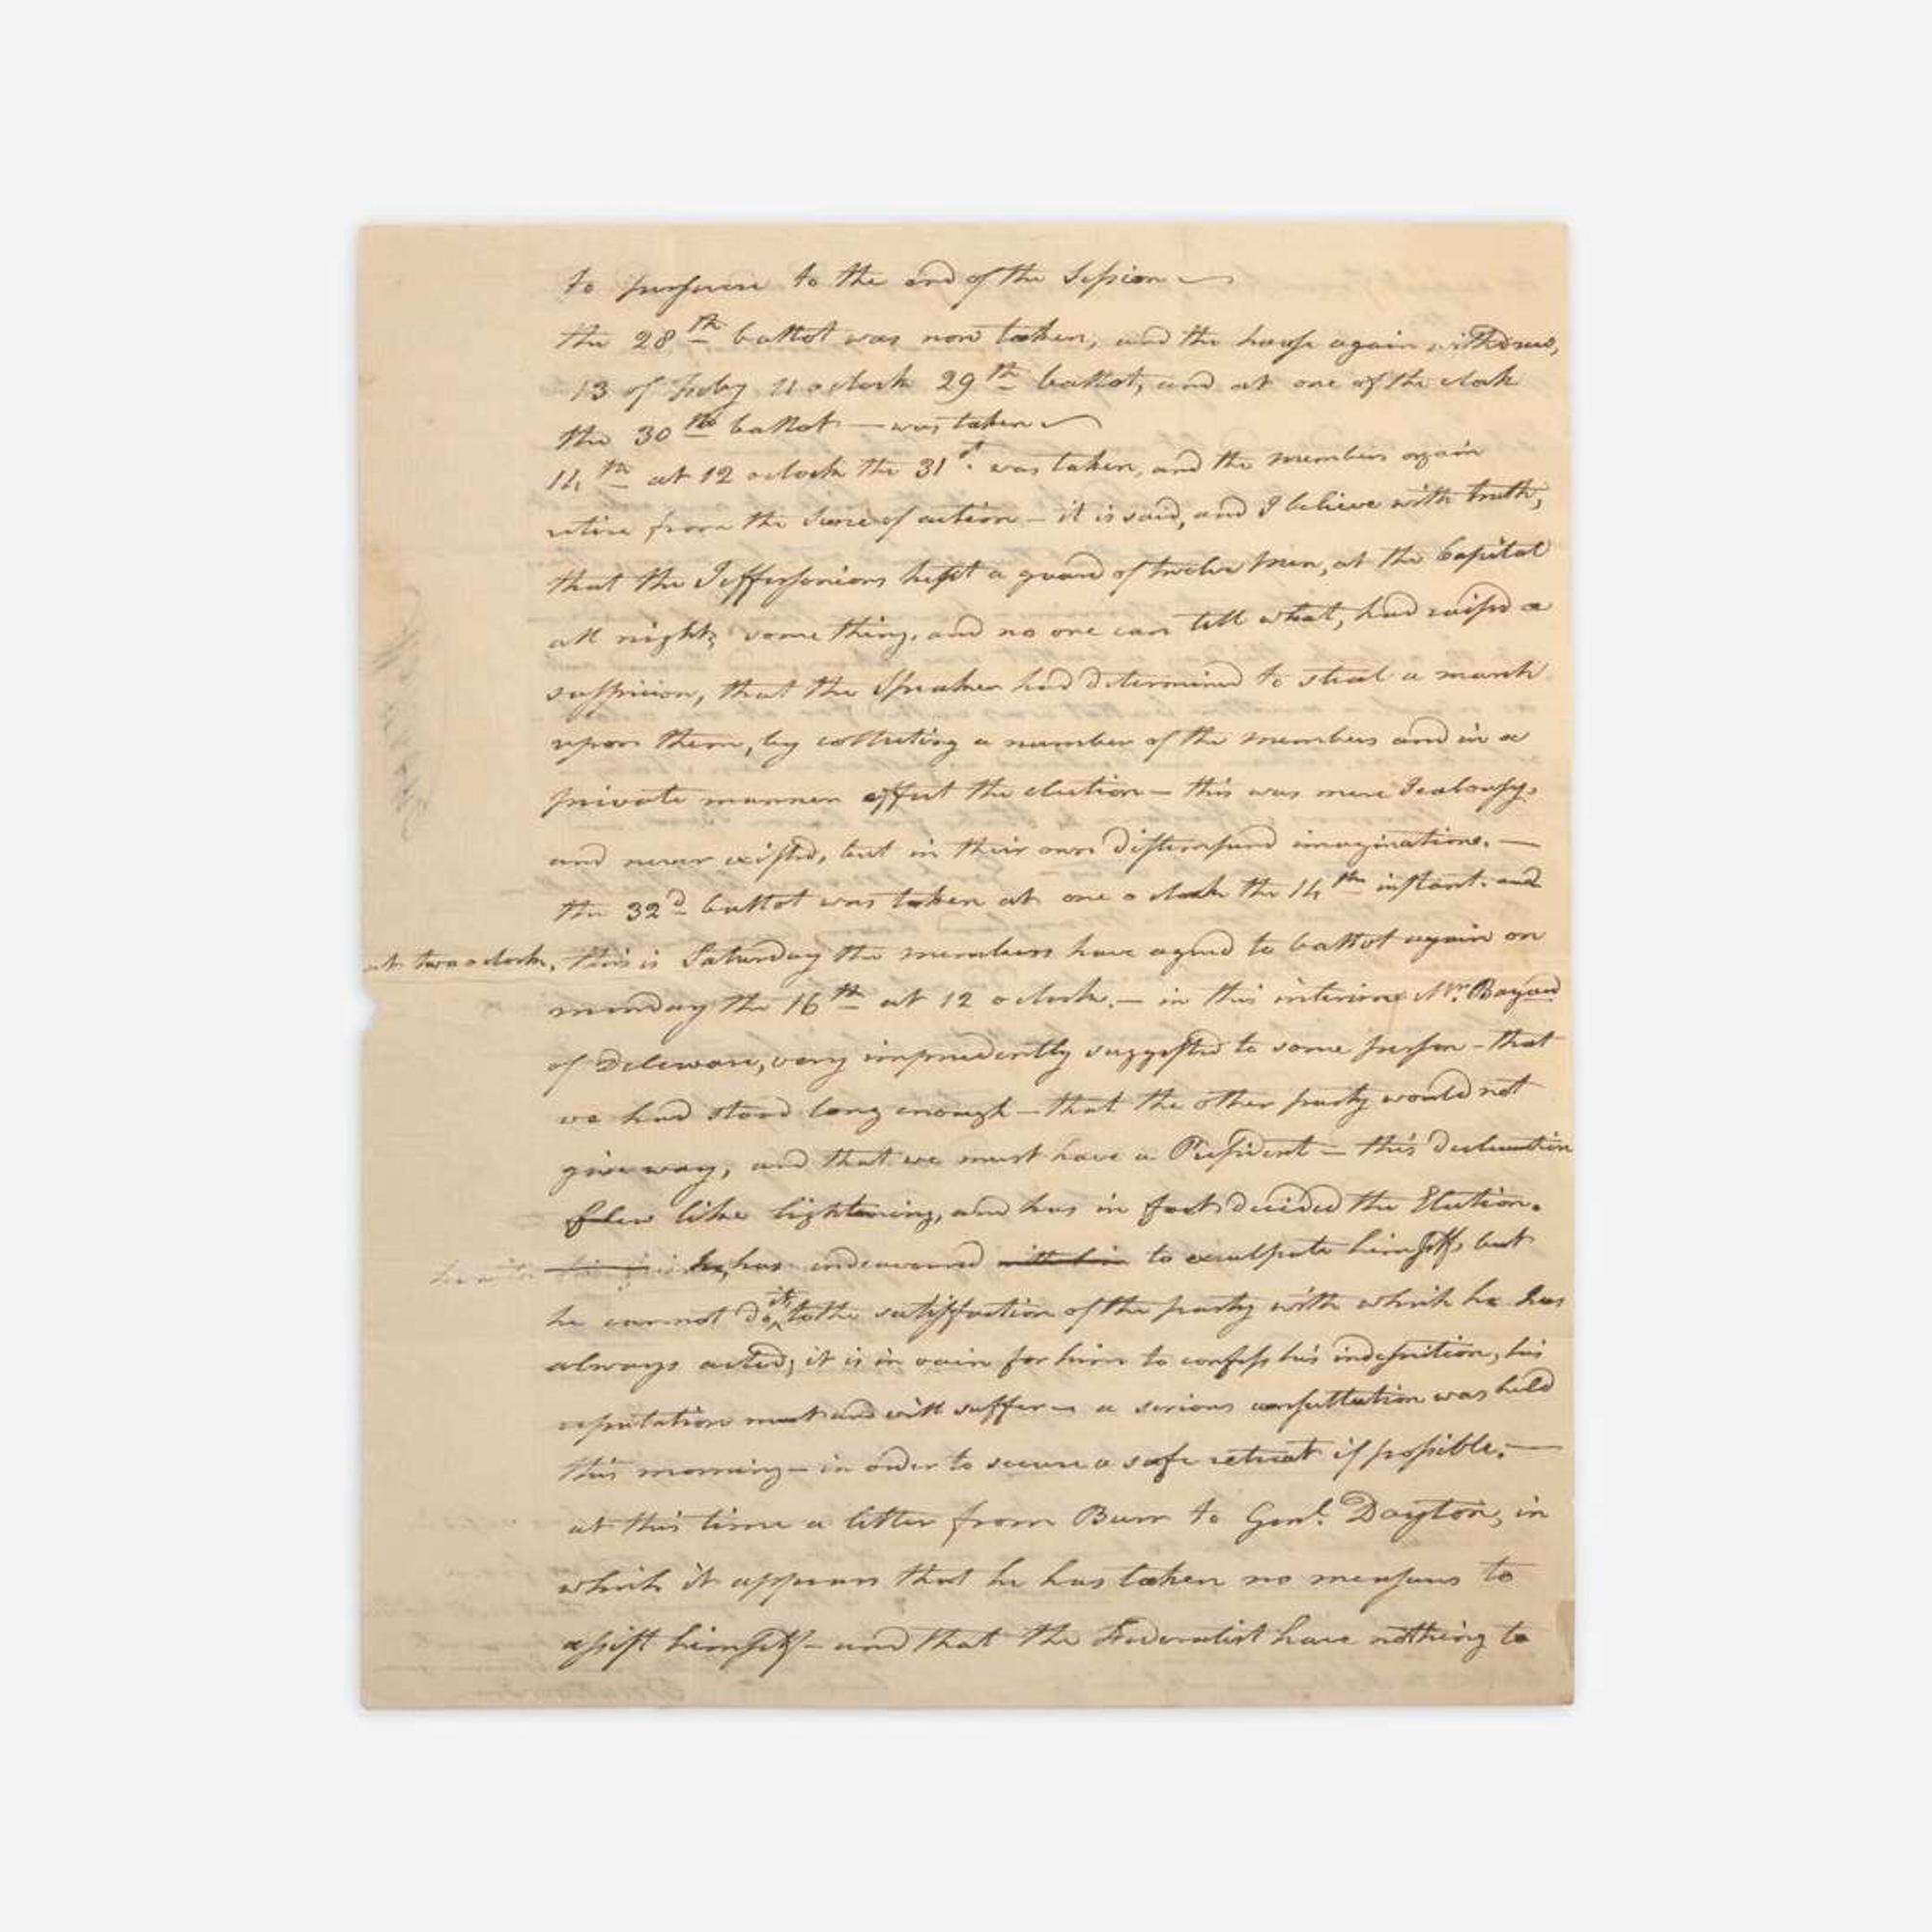 to persevere to the end of the Session —
the 28th ballot was now taken, and the house again withdrew,
13 of Feby 11 o clock 29th ballot, and at one of the clock
the 30th ballot — was taken
14th at 12 o clock the 31st. was taken, and the members again
retire from the Scene of action — it is said, and I believe with truth,
that the Jeffersonians kept a guard of twelve men, at the Capitol
all night, some thing, and no one can tell what, had raised a
suspicion, that the Speaker had determined to steal a march
upon them, by collecting a number of the members and in a
private manner effect the election — this was mere Jealousy,
and never existed, but in their own distempered imaginations. —
the 32d ballot was taken at one o clock the 14th instant. and
at two o clock, this is Saturday the members have agreed to ballot again on
monday the 16th at 12 o clock. — in this interim Mr. Bayard
of Deleware, very imprudently suggested to some person — that
we had stood long enough — that the other party would not
give way, and that we must have a President — this declaration
flew like lightening, and has in fact decided the Election.
he has endeavoured to exculpate himself, but
he cannot do it to the satisfaction of the party with which he has
always acted, it is in vain for him to confess his indiscretion, his
reputation must and will suffer — a serious consultation was held
this morning — in order to secure a safe retreat if possible. —
at this time a letter from Burr to Genl. Dayton, in
which it appears that he has taken no measures to
assist himself — and that the Federalist have nothing to